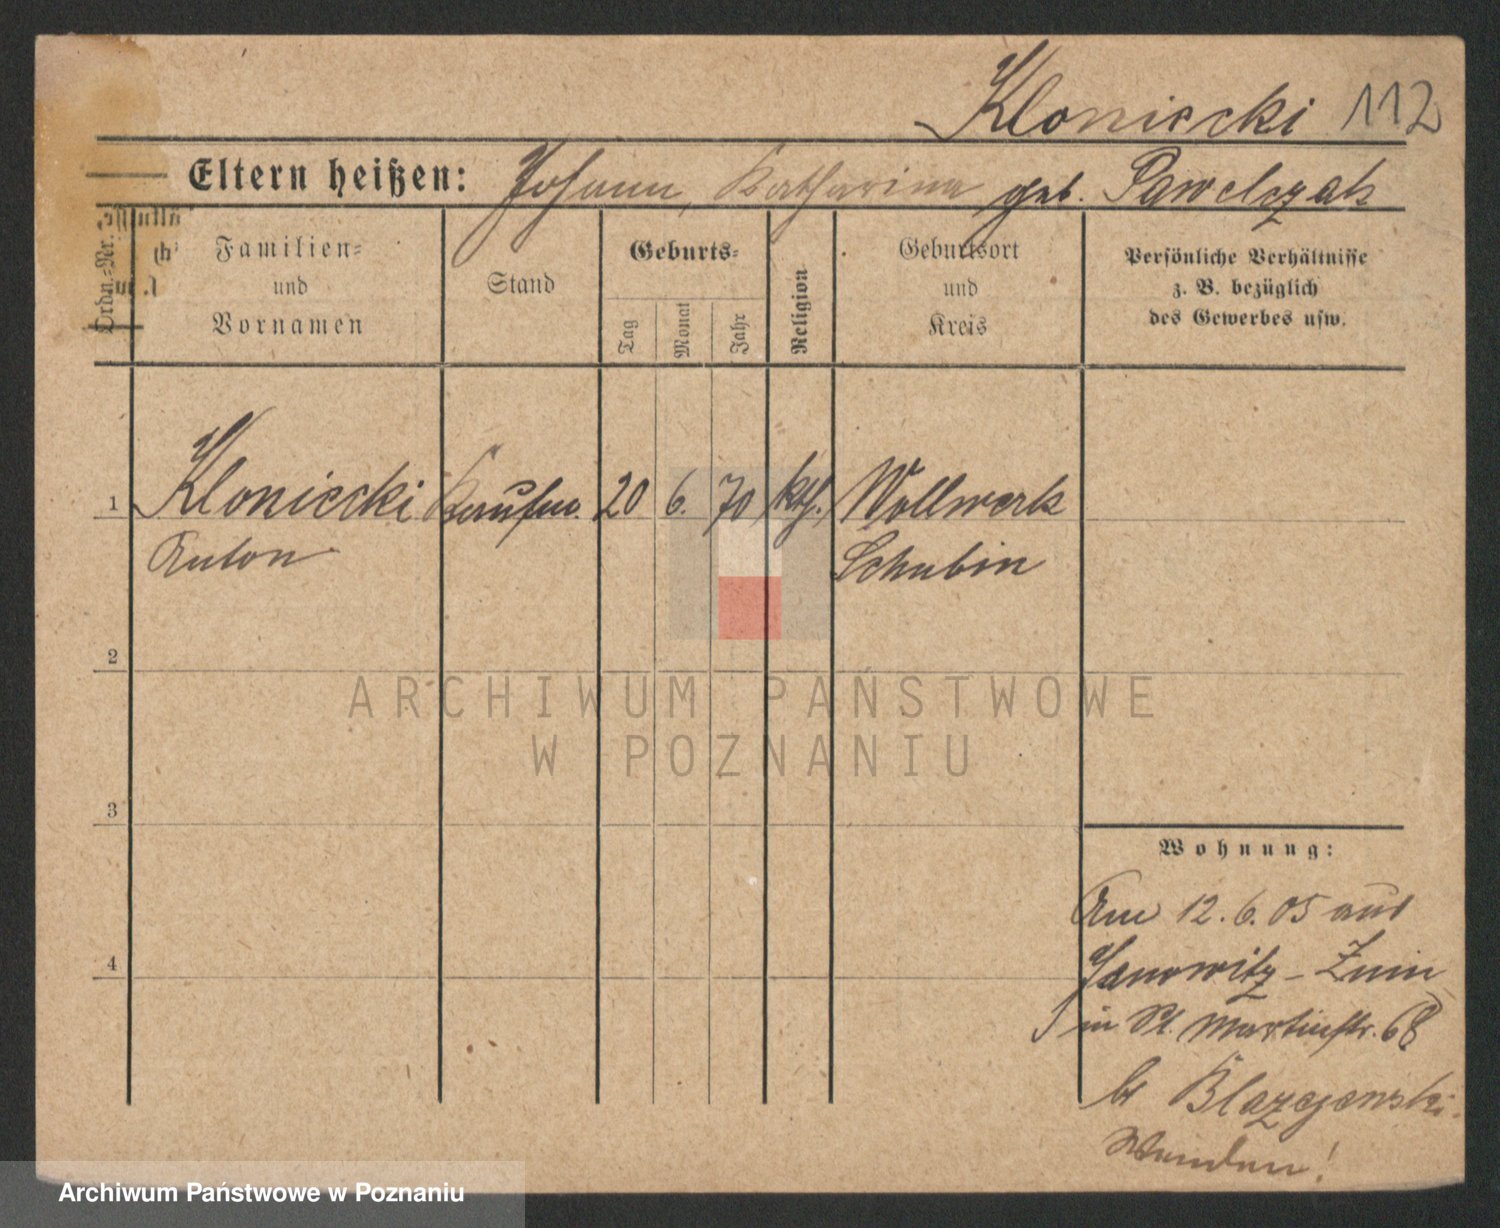 Kloniecki 112
Eltern heißen: Johann, Katharina geb. Pawelczak
Ordn.-Nr.
Familien-
und
Vornamen
Stand
Geburts-
Tag
Monat
Jahr
Religion
Geburtsort
und
Kreis
Persönliche Verhältnisse
z. B. bezüglich
des Gewerbes usw.
1 Kloniecki Kaufm. 20 6. 70 kth. Wollwark
Anton Schubin
2
ARCHIWUM PAŃSTWOWE
W POZNANIU
3
Wohnung:
Am 12.6.05 aus
4
Janowitz - Znin
in St. Martinstr. 68
br
Wenden!
Archiwum Państwowe w Poznaniu